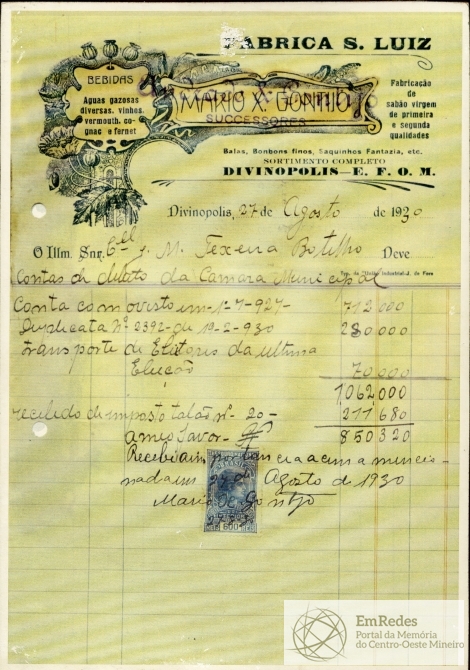 FABRICA S. LUIZ
BEBIDAS
Aguas gazosas
diversas, vinhos,
vermouth, co-
gnac e fernet
MARIO X. GONTIJO
SUCCESSORES
Fabricação
de
sabão virgem
de primeira
e segunda
qualidades
Balas, Bonbons finos, Saquinhos Fantazia, etc.
SORTIMENTO COMPLETO
DIVINOPOLIS—E. F. O. M.
Divinopolis, 27 de Agosto de 1930
O Illm. Snr. Cel J. M. Texeira Botilho Deve
Contas de debito da Camara Municipal
Conta com o visto em 1-7-927- 712000
Duplicata Nº 2392 de 19-2-930 280000
transporte de Eleitores da ultima
Eleição 70.000
1062,000
recibido de imposto talão nº 20- 211680
a meo favor- 850320
Recebi a importancia acima mencio
nada em 27 de Agosto de 1930
Mario X. Gontijo
600
EmRedes
Portal da Memória
do Centro-Oeste Mineiro